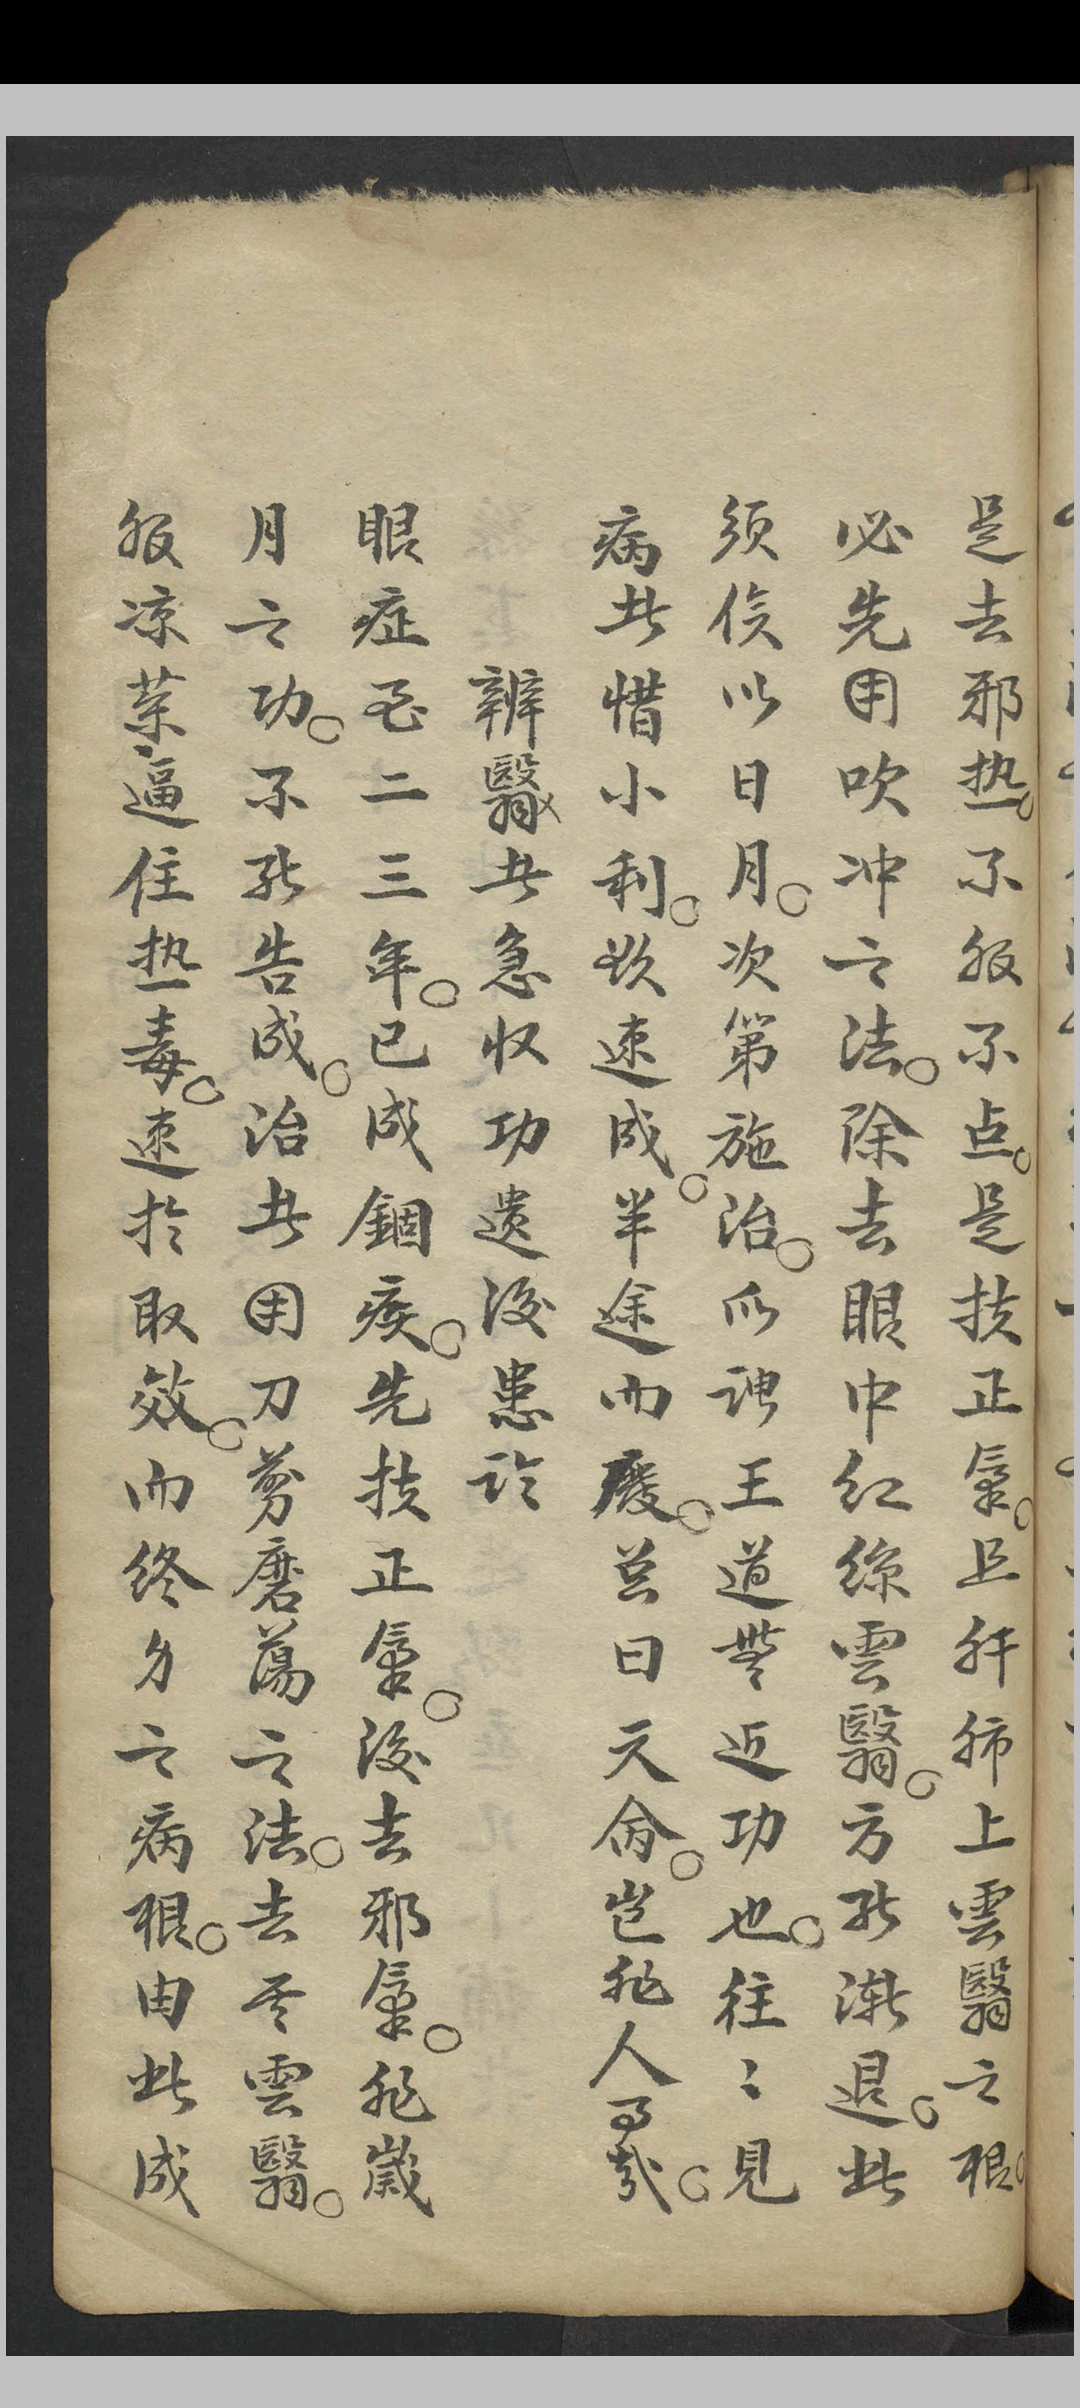 是去邪热。不服不点。是扶正氣。且肝肺上雲翳之根。
必先用吹冲之法。除去眼中红缐雲翳。方能漸退。此
须俟以日月。次第施治。所谓王道無近功也。往〻見
病者惜小利。欲速成。半途而廢。总曰天命。岂非人事哉。
辨翳者急收功遗後患论
眼症至二三年。已成錮疾。先扶正氣。後去邪氣。非歲
月之功。不能告成。治者用刀剪磨蕩之法。去其雲翳。
服凉药逼住热毒。速於取效。而终身之病根。由此成